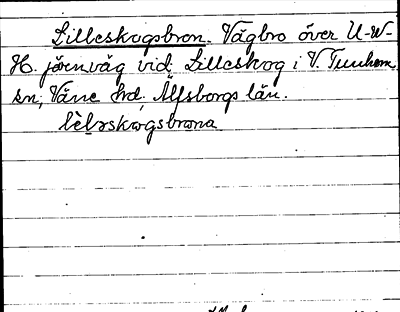 Lilleskogsbron. Vägbro över U-W-
H. järnväg vid Lilleskog i V. Tunhem
sn, Väne hd, Älfsborgs län.
lèl₂skogsbrona